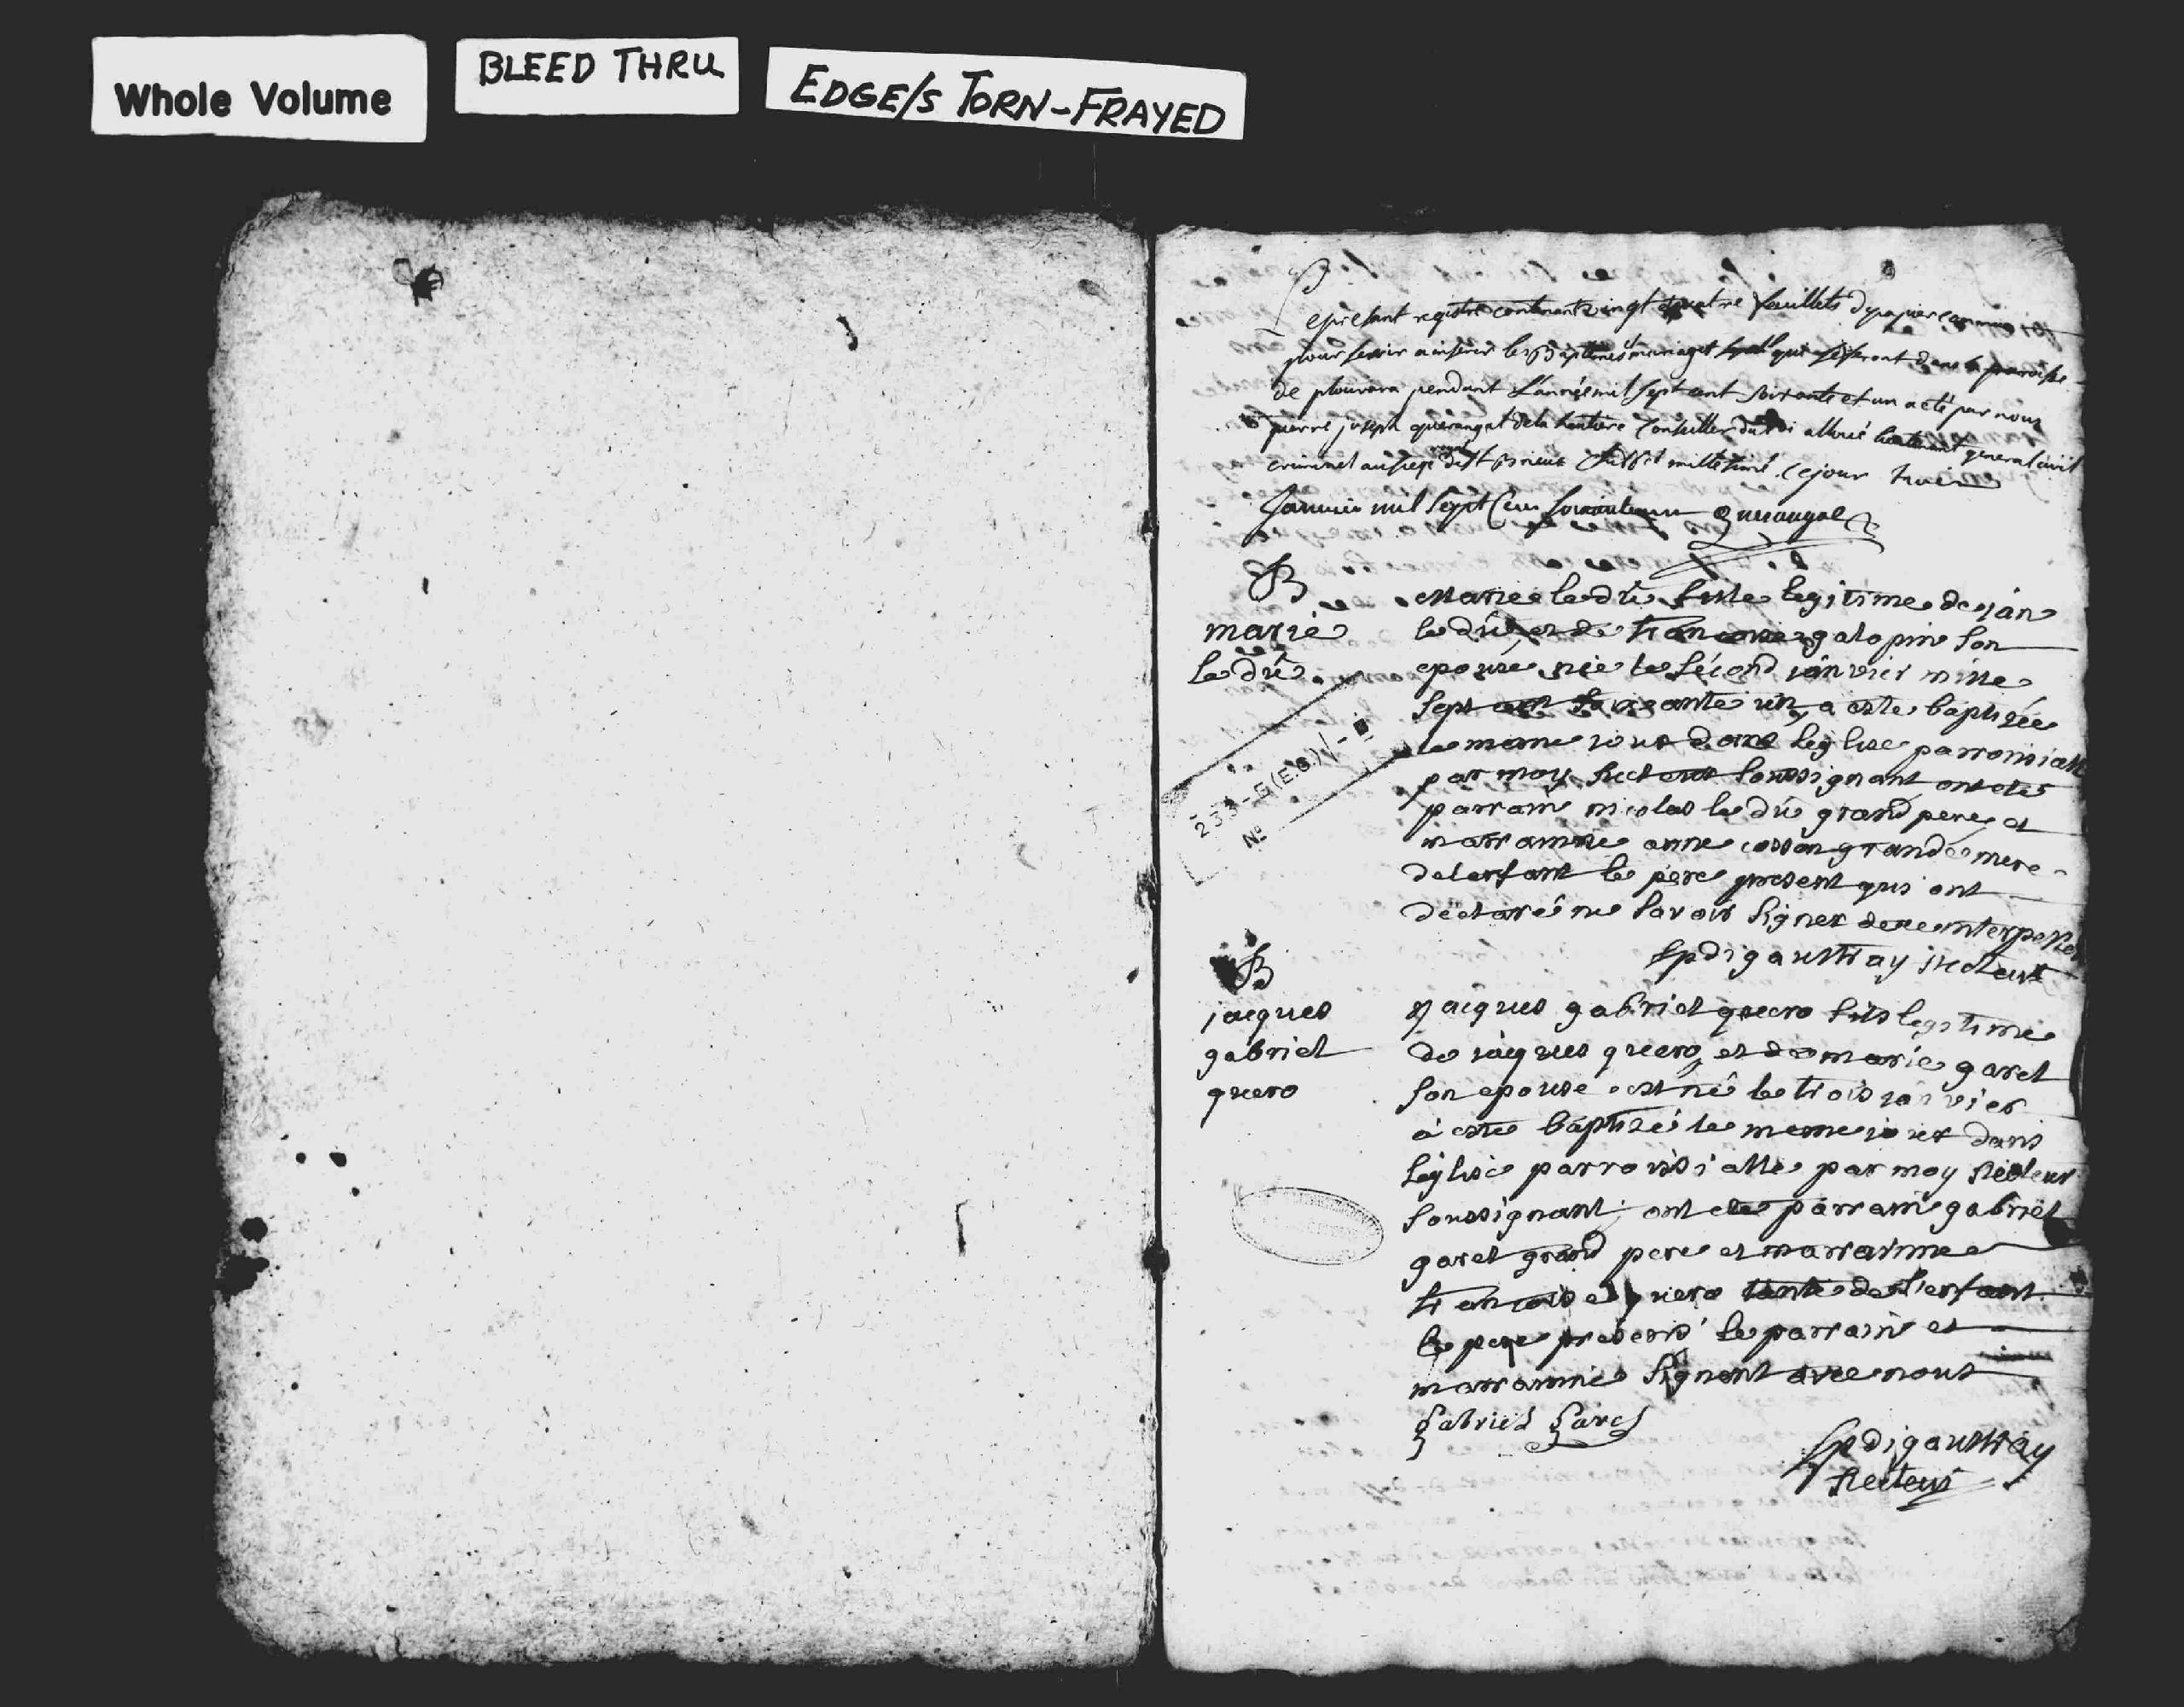 Whole Volume
BLEED THRU
EDGE/S TORN-FRAYED
Le present registre contenant vingt quatre feuillets de papier commun
pour servir a inserer les Baptemes et mariages qui se feront dans la paroisse
de plouvara pendant L'année mil sept cent soixante et un a eté par nous
pierre joseph querangal de la hautiere Conseiller du Roi alloué lieutenant general civil
criminel au siege de st Brieuc Chiffré et millesimé ce jour trois
Janvier mil sept Cens soixante un Querangal
B
marie
le dû
Marie le dû fille legitime de jan
le dû et de francoise galopin son
epouse née le sécond janvier mille
sept cent soixante un a esté baptisée
le meme jour dans leglise parroissialle
par moy Recteur soussignant ont etés
parrain nicolas le dû grand pere et
marrainne anne cosson grande mere
de lenfant le pere present qui ont
declaré ne savoir signer de ce interpelés
digaultray Recteur
B
jacques
gabriel
quero
Jacques gabriel quero fils legitime
de jacques quero et de marie garel
son epouse est né le trois janvier
à esté baptisé le meme jour dans
léglise parroissialle par moy Recteur
soussignant ont etés parrain gabriel
garel grand pere et marrainne
francoise quero tante de l'enfant
le pere present le parrain et
marrainne signent avec nous
Gabriel Garel
digaultray
Recteur
233-E(E.G.)
Nº